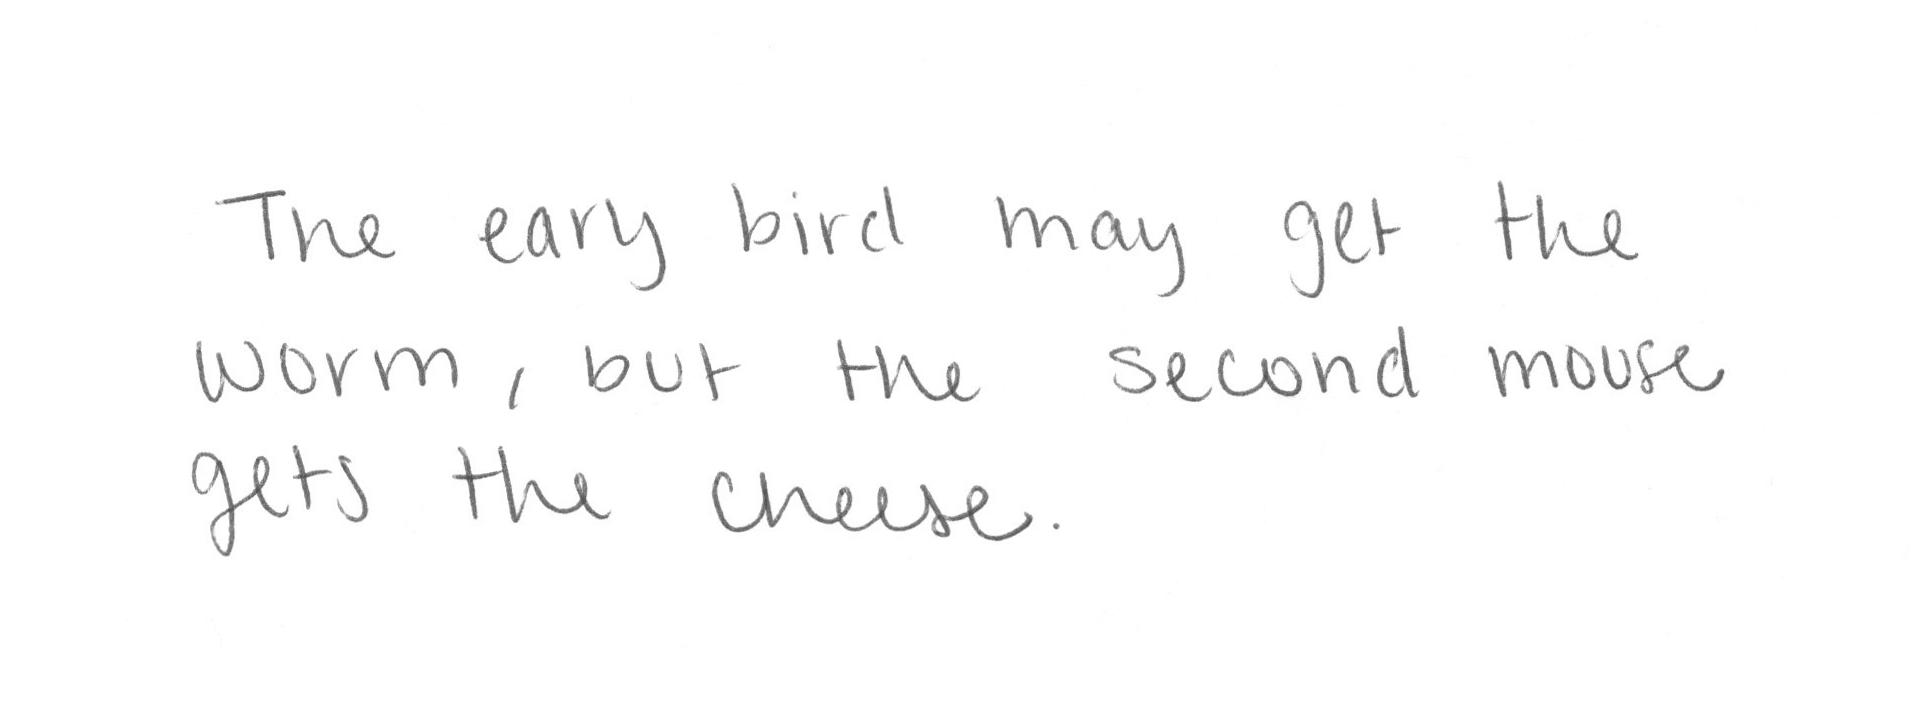 The eary bird may get the
worm, but the second mouse
gets the cheese.